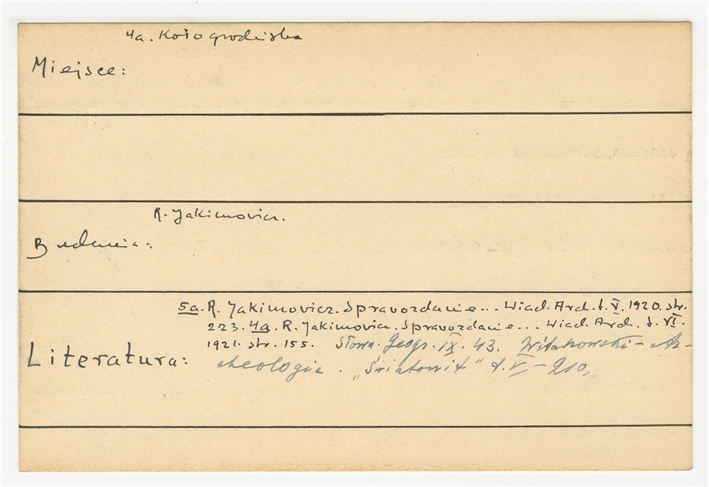 4a. Kołogrodziska
Miejsce:
R. Jakimowicz.
Badania:
5a. R. Jakimowicz. Sprawozdanie... Wiad. Arch. t. V. 1920. str.
223. 4a. R. Jakimowicz. Sprawozdanie... Wiad. Arch. t. VI.
1921. str. 155. Słown. Geogr. IX. 43. - Ar-
Literatura:
cheologia. "Światowit" t. V, - 210,